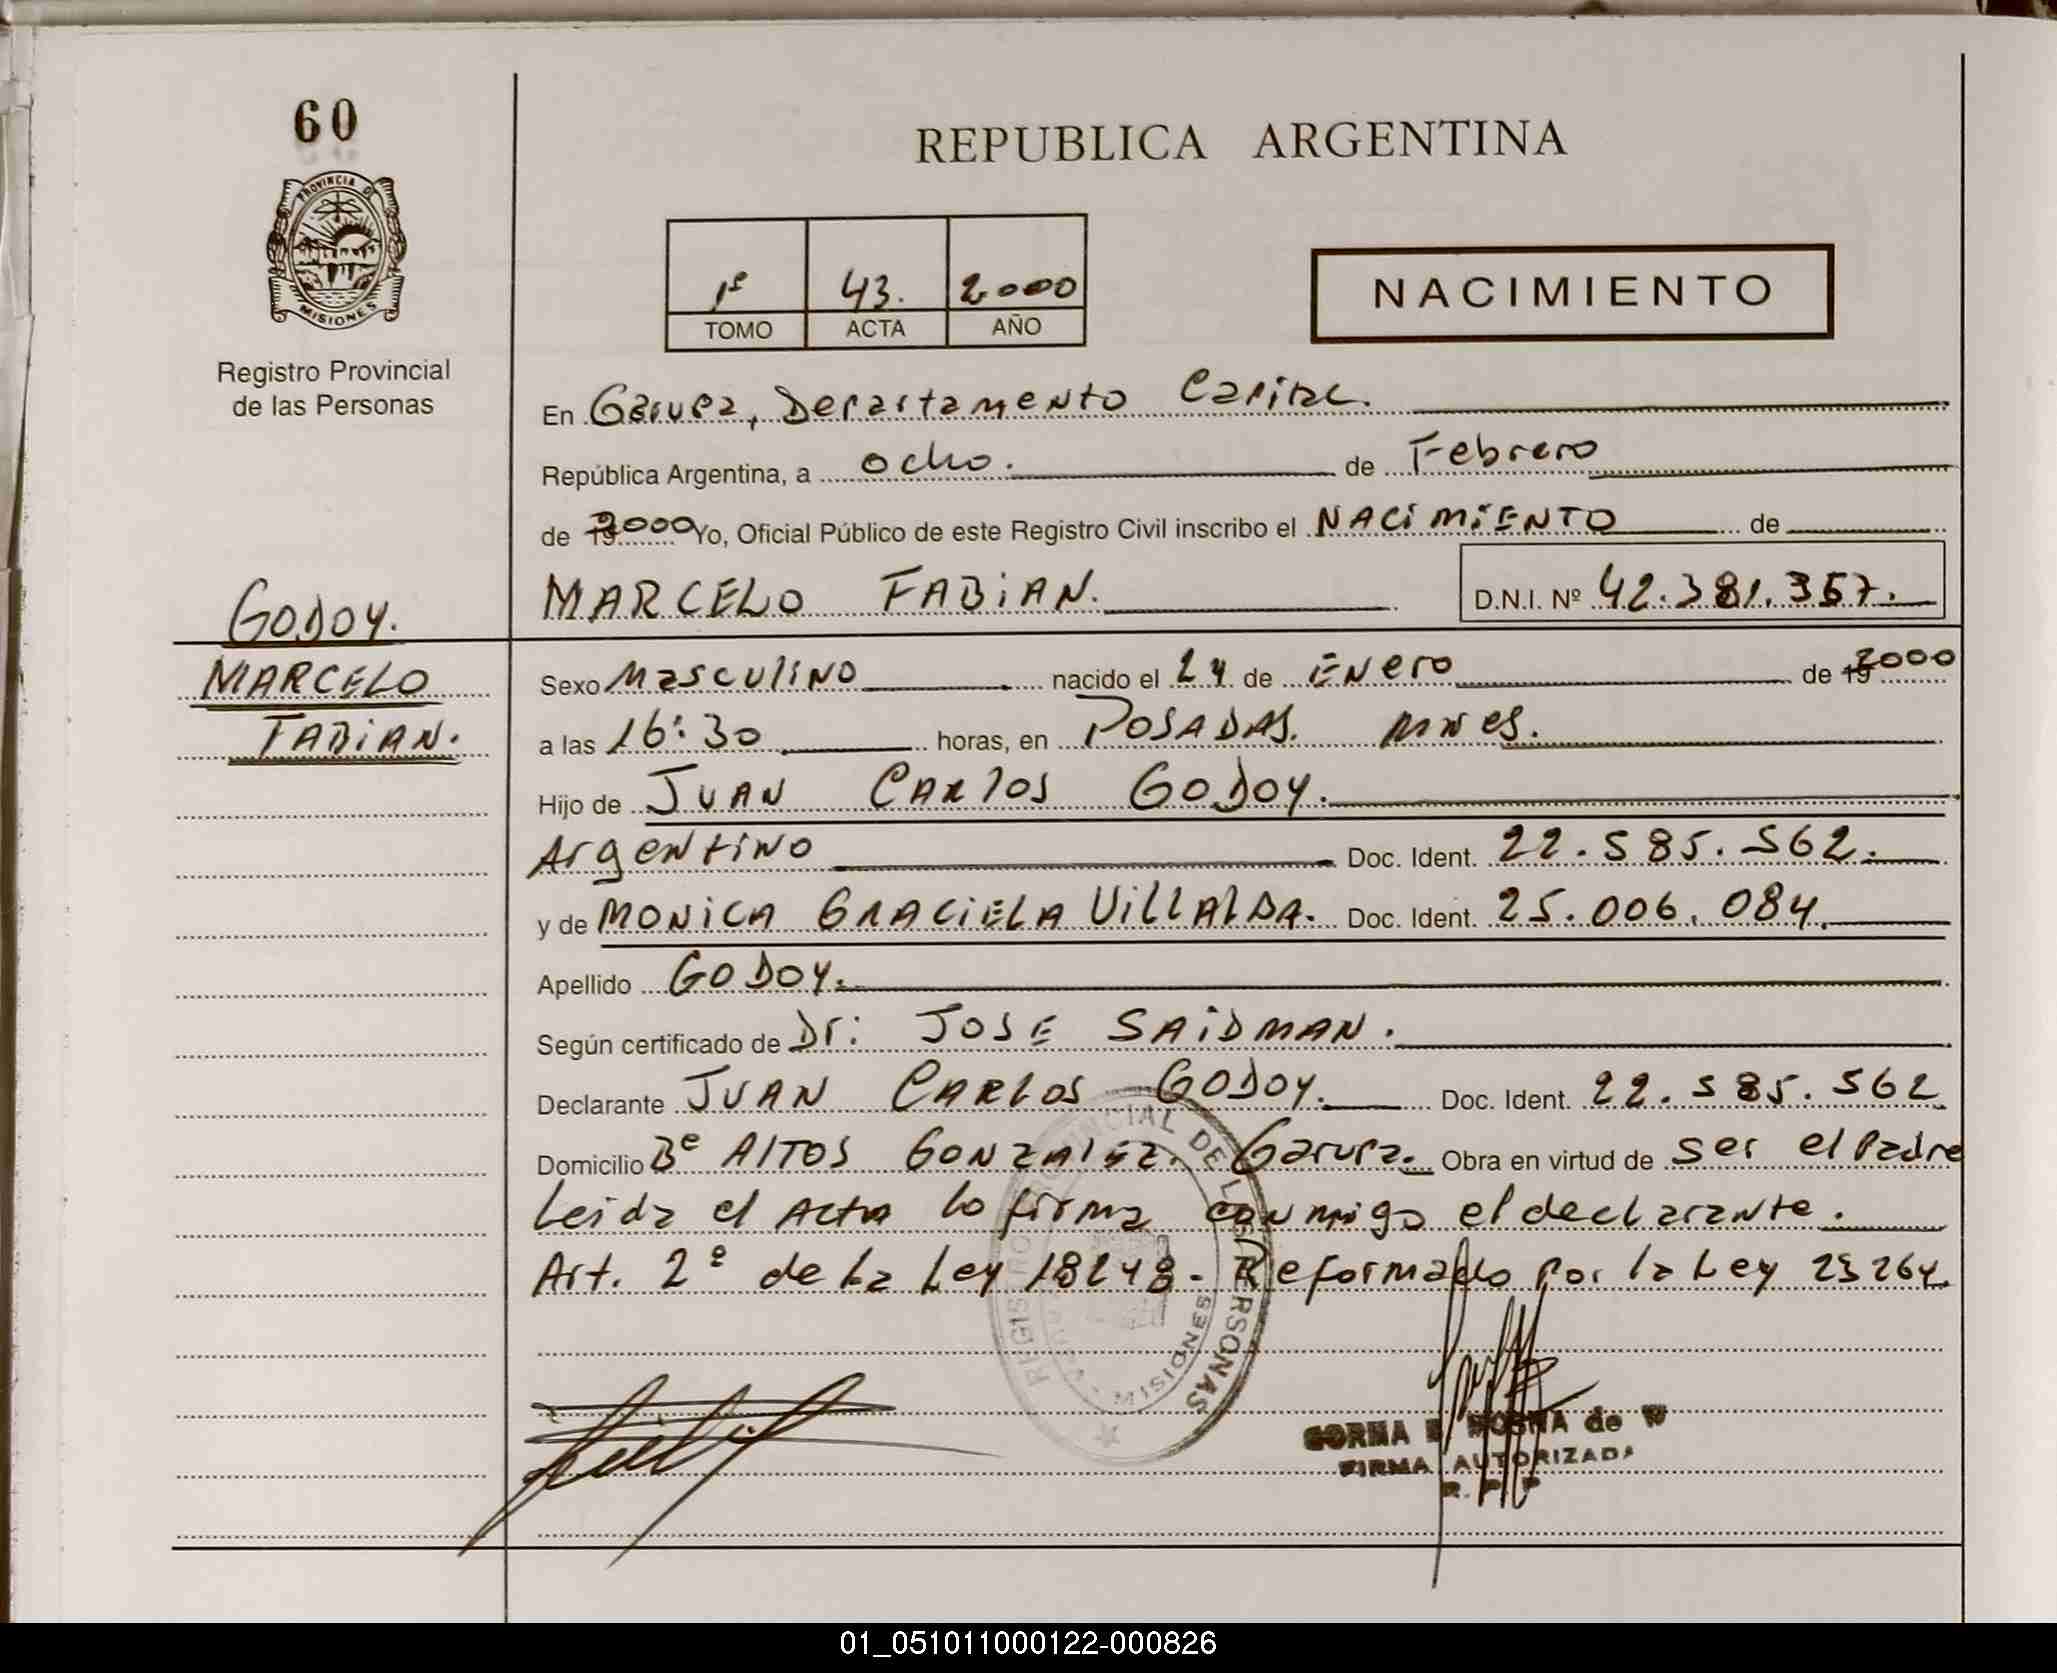 60
REPUBLICA ARGENTINA
PROVINCIA DE
MISIONES
Registro Provincial
de las Personas
1º 43. 2000
TOMO ACTA AÑO
NACIMIENTO
En Garupa, Departamento Capital.
República Argentina, a ocho. de Febrero
de 2000 Yo, Oficial Público de este Registro Civil inscribo el NACIMIENTO de
MARCELO FABIAN. D.N.I. Nº 42.381.357.
GODOY.
MARCELO
FABIAN.
Sexo Masculino nacido el 24 de ENero de 2000
a las 16:30 horas, en POSADAS. mnes.
Hijo de JUAN CARlos GODOY.
Argentino Doc. Ident. 22.585.562.
y de MONICA GRACIELA VILLALBA. Doc. Ident. 25.006.084.
Apellido GODOY.
Según certificado de Dr: JOSE SAIDMAN.
Declarante JUAN CARLOS GODOY. Doc. Ident. 22.585.562
Domicilio Bº AlTOS GONZALEZ. Garupa. Obra en virtud de ser el Padre
Leida el Acta lo firma conmigo el declarante.
Art. 2º de la Ley 18248- Reformado por la Ley 23264.
REGISTRO PROVINCIAL DE LAS PERSONAS
MISIONES
de W
FIRMA AUTORIZADA
R. P. P
01_051011000122-000826